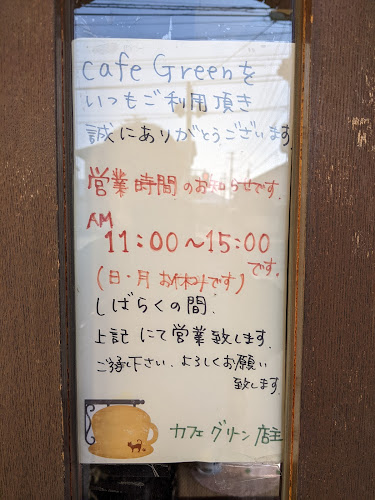 cafe Greenを
いつもご利用頂き
誠にありがとうございます.
営業時間のお知らせです.
AM
11:00～15:00
です.
(日・月 お休みです)
しばらくの間.
上記にて営業致します.
ご承下さい. よろしくお願い
致します.
カフェグリーン店主